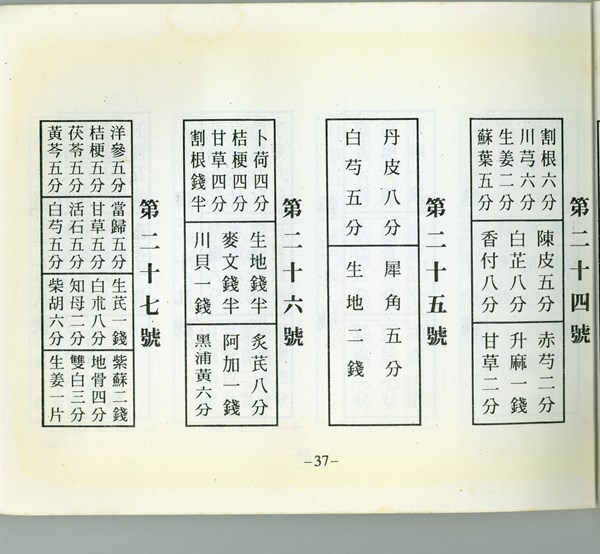 第二十四號
割根六分
川芎六分
生姜二分
蘇葉五分
陳皮五分
白芷八分
香付八分
赤芍二分
升麻一錢
甘草二分
第二十五號
丹皮八分
白芍五分
犀角五分
生地二錢
第二十六號
卜荷四分
桔梗四分
甘草四分
割根錢半
生地錢半
麥文錢半
川貝一錢
炙芪八分
阿加一錢
黑浦黃六分
第二十七號
洋參五分
桔梗五分
茯苓五分
黃芩五分
當歸五分
甘草五分
活石五分
白芍五分
生芪一錢
白朮八分
知母二分
柴胡六分
紫蘇二錢
地骨四分
雙白三分
生姜一片
-37-